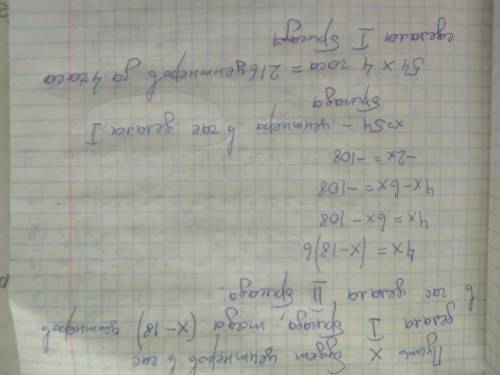 Пусть х будет центнеров в час
делала I бригада, тогда (х-18) центнеров
в час делала II бригада.
4х = (х-18)6
4х = 6х - 108
4х-6х = -108
-2х = -108
х=54 - центнера в час делала I
бригада
54 х 4 часа = 216 центнеров за 4 часа
сделала I бригада